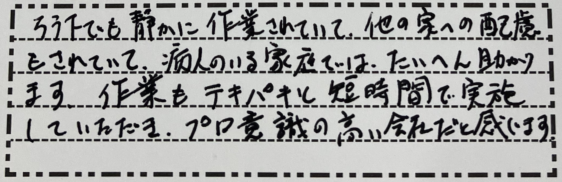 ろう下でも静かに作業されていて、他の家への配慮
もされていて、病人のいる家庭では、たいへん助かり
ます。作業もテキパキと短時間で実施
していただき、プロ意識の高い会社だと感じます